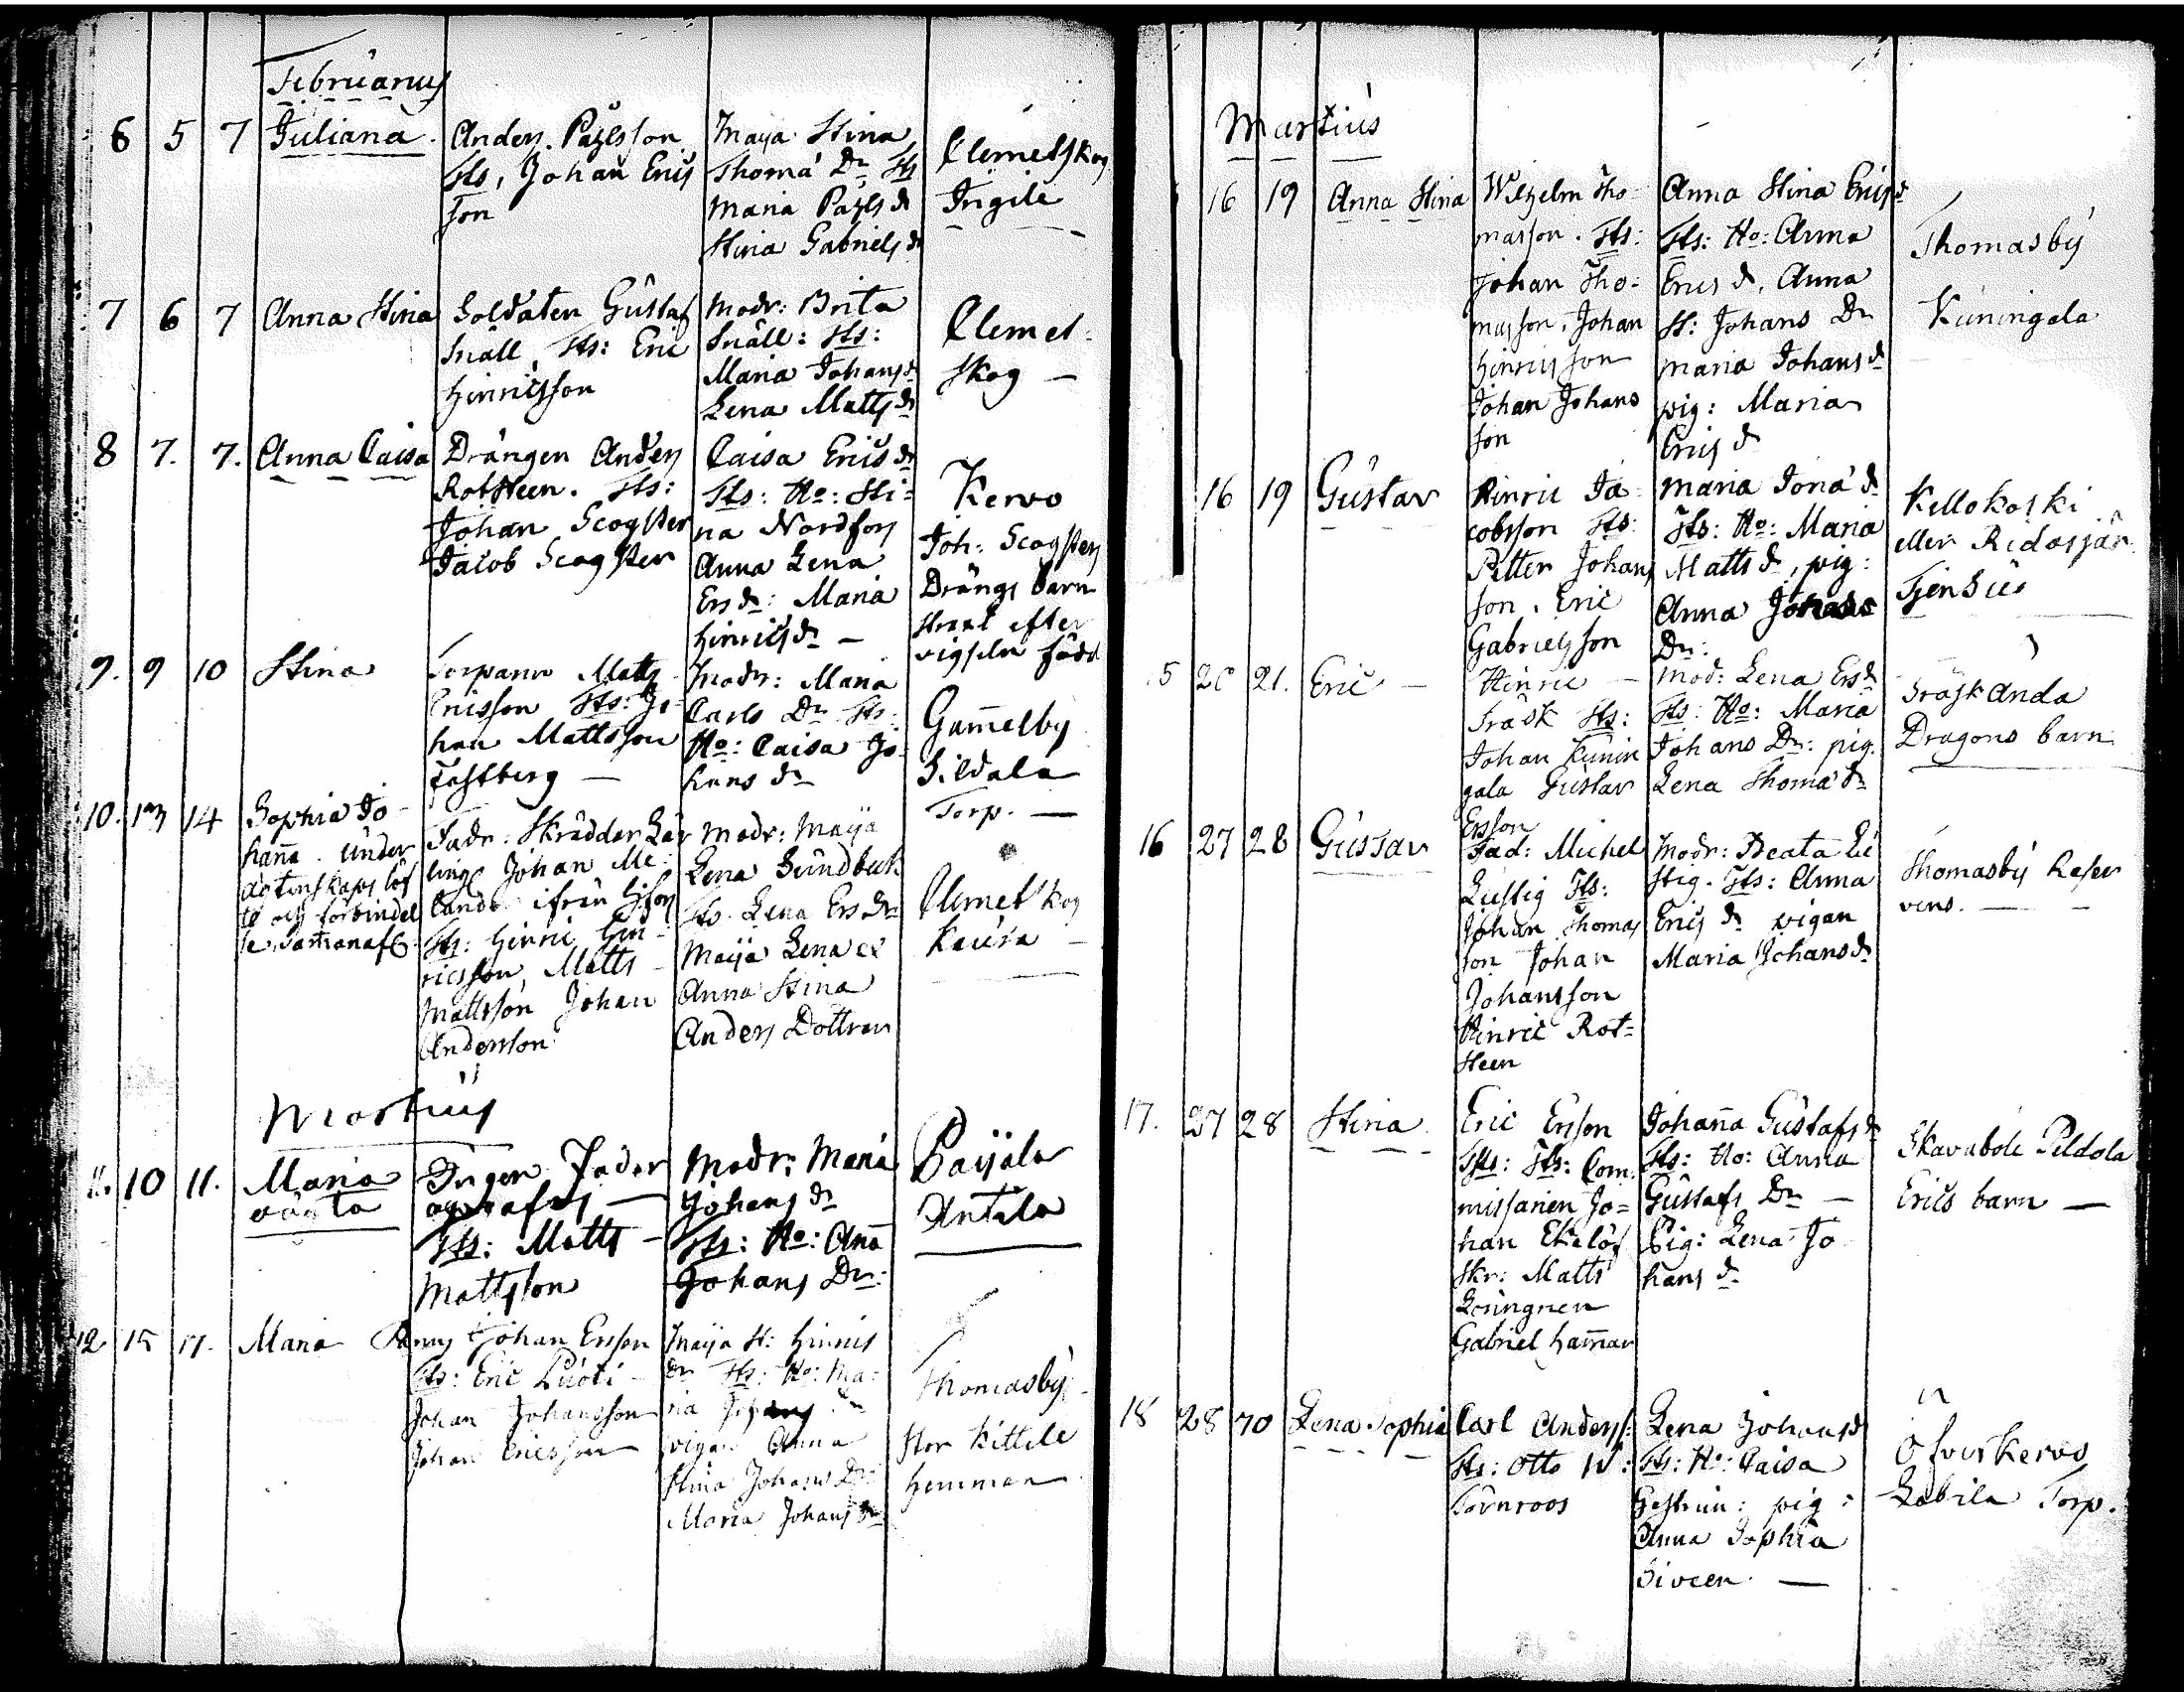 Februarius
6 5 7 Juliana
Anders Påhlsson
Tts, Johan Erics
son
Maja Stina
Thoma Dr Tts
Maria Påhls dr
Stina Gabriels dr
Clemetskog
Ingile
7 6 7 Anna Stina
Soldaten Gustaf
Snäll, Tts: Eric
Hinricsson
Modr: Brita
Snäll: Tts:
Maria Johans dr
Lena Matts dr
Clemet-
skog —
8 7. 7. Anna Caisa
Drängen Anders
Rotsteen. Tts:
Johan Scogster
Jacob Scogster
Caisa Erics dr
Tts: Ho: Sti-
na Nordfors
Anna Lena
Ers dr: Maria
Hinrics dr —
Kervo
Joh: Scogsters
Drängs barn
straxt efter
vigseln född
9. 9 10 Stina
Torparn Matts
Ericsson Tts: Jo-
han Mattsson
Tastberg —
Modr: Maria
Carls Dr Tts:
Ho: Caisa Jo-
hans dr
Gammelby
Sildala
Torp. —
10. 13 14 Sophia Jo-
hanna. under
ägtenskaps löf
te och förbindel
se
Fadr. Skräddar Lär
ling Johan Me-
Tts: Hinric Hin-
ricsson Matts
Mattsson Johan
Andersson
Modr: Maija
Lena Sundbäck
Tts. Lena Ers dr
Maija Lena et
Anna Stina
Anders Dottrar
Clemetskog
Martius
11. 10 11. Maria
oägta
Ingen Fader
Tts: Matts
Mattsson
Modr: Maria
Johans dr
Tts: Ho: Anna
Johans Dr:
Paijala
Antila
12 15 17. Maria
Johan Ersson
Tts: Eric
Johan Johansson
Johan Ericsson
Maija St: Hinrics
dr Tts: Ho: Ma-
ria Johans dr
pigan Anna
Stina Johans Dr:
Maria Johans dr
Thomasby
Stor Kittile
Hemman
Martius
16 19 Anna Stina
Wilhelm Tho-
masson. Tts:
Johan Tho-
masson, Johan
Hinricsson
Johan Johans
son
Anna Stina Erics dr
Tts: Ho: Anna
Erics dr, Anna
St: Johans Dr
Maria Johans dr
pig: Maria
Erics dr
Thomasby
Kuningala
16 19 Gustav
Hinric Ja-
cobsson Tts:
Petter Johans
son, Eric
Gabrielsson
Maria Jona dr
Tts: Ho: Maria
Matts dr, pig:
Anna Johans
Dr:
Kellokoski
eller Ridasjär
5 20 21. Eric —
Hinric —
Träsk Tts:
Johan Kunin
gala Gustav
Ersson
Mod: Lena Ers dr
Tts: Ho: Maria
Johans Dr: pig.
Lena Thoma dr
Träskända
Dragons barn
16 27 28 Gustav
Fad: Michel
Lustig Tts:
Johan Thomas
son Johan
Johansson
Hinric Rot-
steen
Modr: Beata Lu
stig. Tts: Anna
Erics dr pigan
Maria Johans dr
Thomasby Reser
vens. —
17. 27 28 Stina
Eric Ersson
Tts: Com-
missarien Jo-
han Ekelöf
Skr: Matts
Gabriel Hammar
Johanna Gustafs dr
Tts: Ho: Anna
Gustafs Dr —
Pig: Lena Jo
hans dr
Skavaböle Peldola
Erics barn —
18 28 30 Lena Sophia
Carl Anderss:
Tts: Otto W:
Törnroos
Lena Johans dr
Tts: Ho: Caisa
Gestrin: pig:
Anna Sophia
Siveen. —
Öfverkervo
Labila Torp.